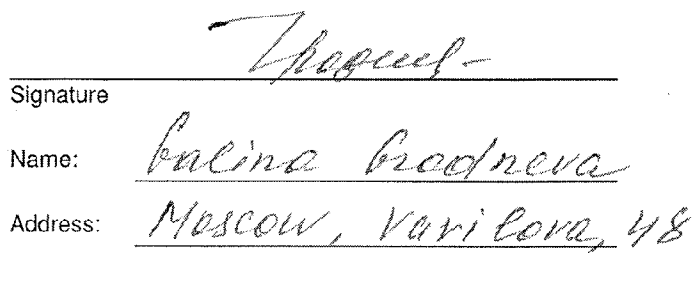 Signature
Name: Galina Gradneva
Address: Moscow, Vavilova, 48